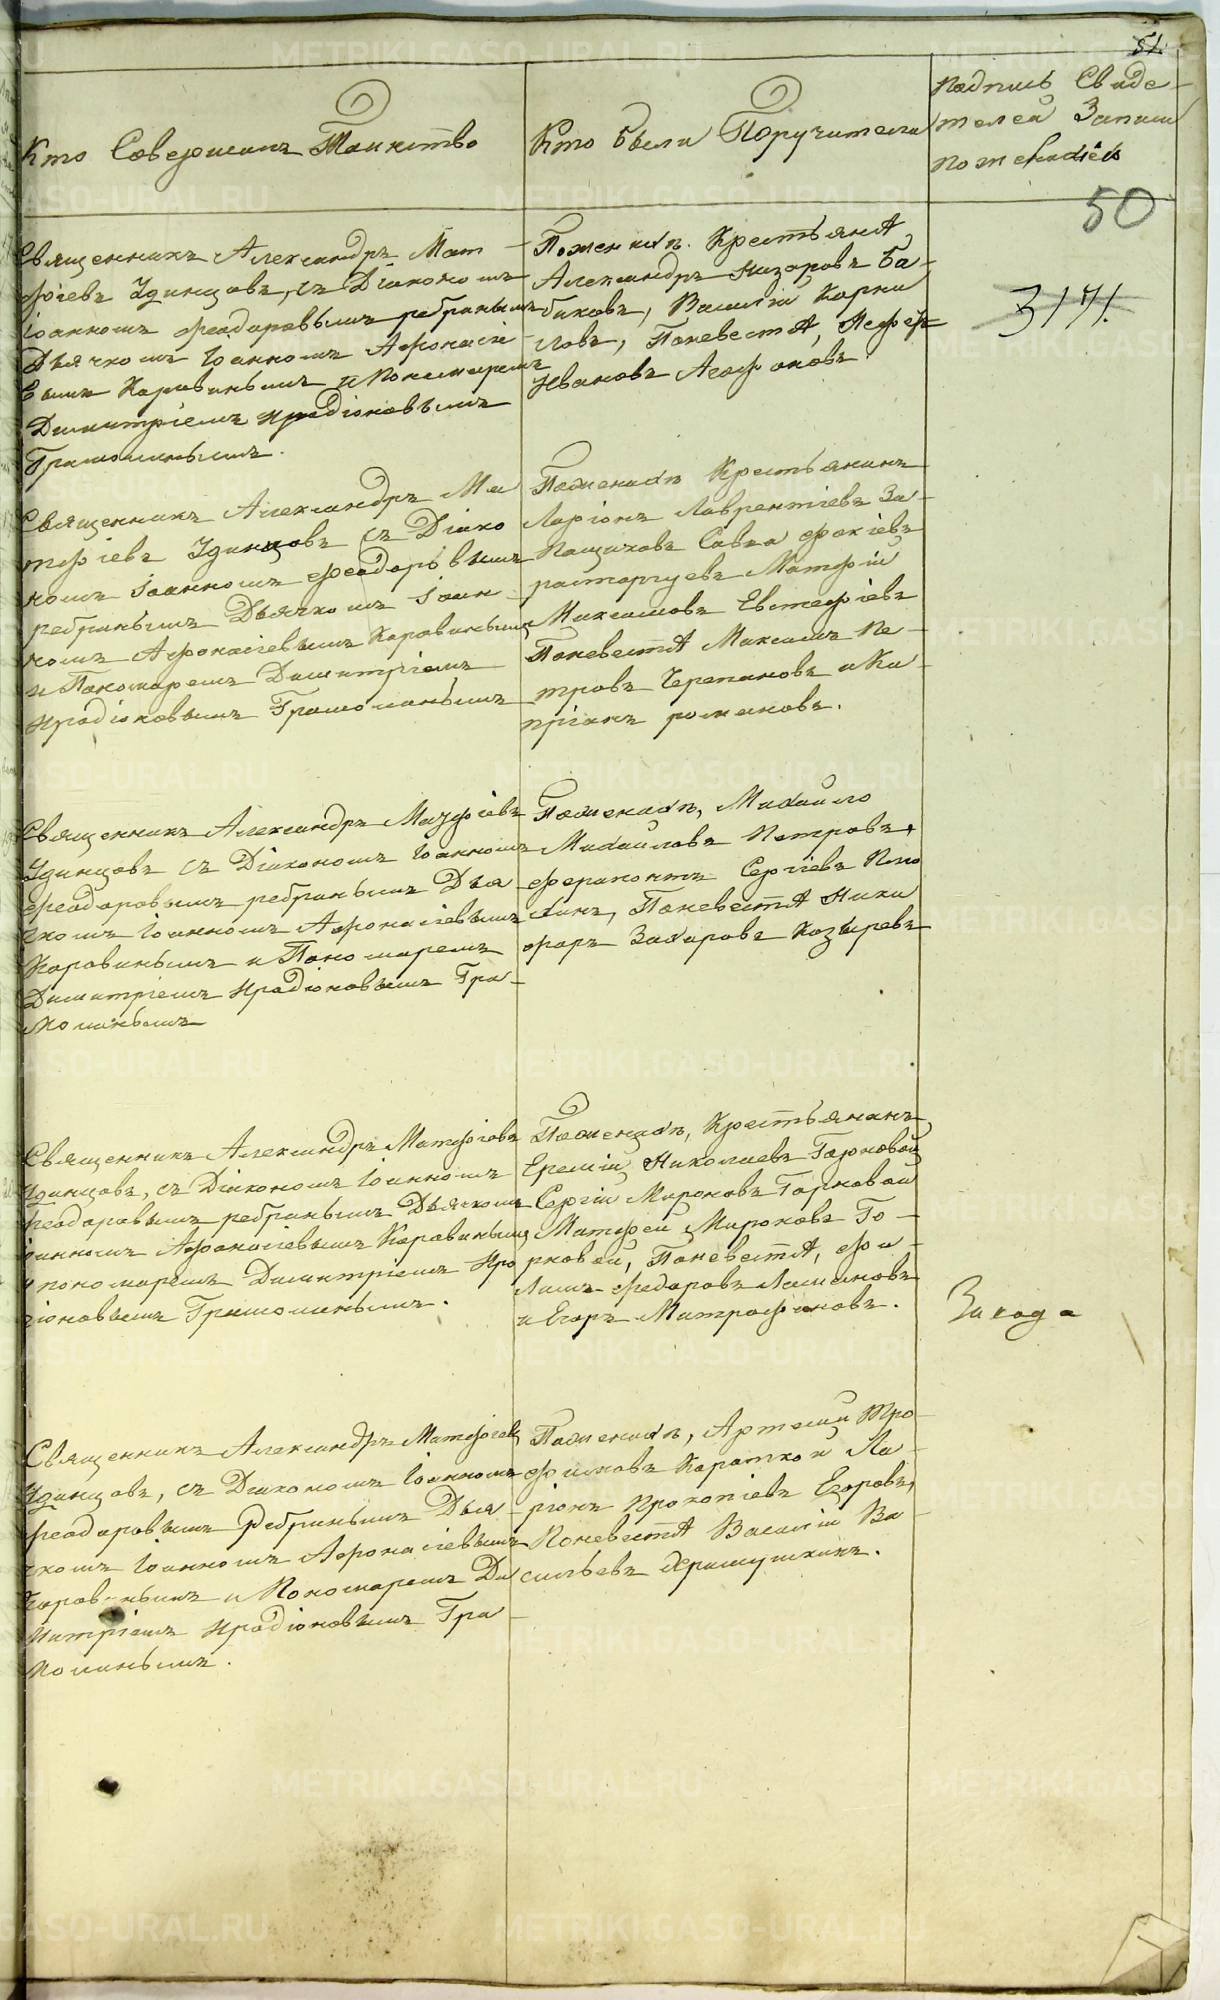 51.
Кто Совершалъ Таинство
Кто были Поручители
подпись Свиде-
телей Записи
по желанію
50
3171.
Священникъ Александръ Мат-
фіевъ Удинцовъ, съ Діакономъ
Іоанномъ феодоровымъ ребринымъ
Дьячкомъ Іоанномъ Афонасіи
вымъ Коровинымъ и Пономаремъ
Димитріемъ Иродіоновымъ
Грамолинымъ.
По женихѣ. Крестьянѣ
Александръ Назаровъ Ба-
биковъ, Василій Корни
ловъ, По невестѣ,
Ивановъ Агафоновъ.
Священникъ Александръ Ма
тфіевъ Удинцовъ съ Діако
номъ Іоанномъ феодоровымъ
ребринымъ Дьячкомъ Іоан
номъ Афонасіевымъ Коровинымъ
и Пономаремъ Димитріемъ
Иродіоновымъ Грамолинымъ
По женихѣ Крестьянинъ
Ларіонъ Лаврентіевъ За-
пащиковъ Савва фокіевъ
расторгуевъ Матфій
Максимовъ Евстафіевъ
По невестѣ Максимъ Пе-
тровъ Черепановъ и Ки-
пріанъ романовъ.
Священникъ Александръ Матфіевъ
Удинцовъ съ Діакономъ Іоанномъ
феодоровымъ ребринымъ Дья
чкомъ Іоанномъ Афонасіевымъ
Коровинымъ и Пономаремъ
Димитріемъ Иродіоновымъ Гра-
молинымъ
По женихѣ, Михайло
Михайловъ Петровъ,
ферапонтъ Сергіевъ
По невестѣ Ники
форъ Захаровъ Козыревъ
Священникъ Александръ Матфіевъ
Удинцовъ, съ Діакономъ Іоанномъ
феодоровымъ ребринымъ Дьячкомъ
Іоанномъ Афонасіевымъ Коровинымъ
и пономаремъ Димитріемъ Иро
діоновымъ Грамолинымъ.
По женихѣ, Крестьянинъ
Еремій Николаевъ Горновой
Сергій Мироновъ Горновой
Матфей Мироновъ Го-
рновой, По невестѣ, фи-
липъ федоровъ
и Егоръ Митрофановъ.
За года
Священникъ Александръ Матфіевъ
Удинцовъ, съ Діакономъ Іоанномъ
феодоровымъ Ребринымъ Дья-
чкомъ Іоанномъ Афонасіевымъ
Коровинымъ и Пономаремъ Ди
митріемъ Иродіоновымъ Гра-
молинымъ.
По женихѣ, Артемій Тро-
фимовъ Короткой Ла-
ріонъ Прокопіевъ Егоровъ,
По невестѣ Василій Ва-
сильевъ
METRIKI.GASO-URAL.RU